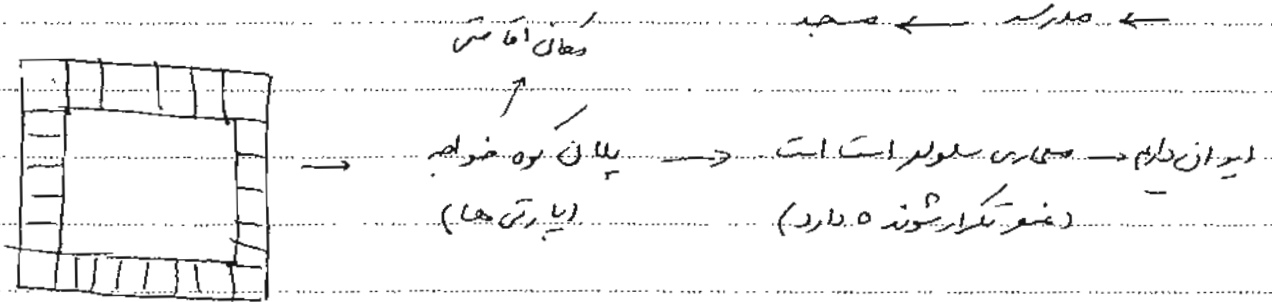 ← مدرسه ← مسجد
مکان اقامتی
ایوان داریم → معماری سلولار است است → پلان کوه خواجه →
(عنصر تکرار شونده دارد) (پارتی ها)